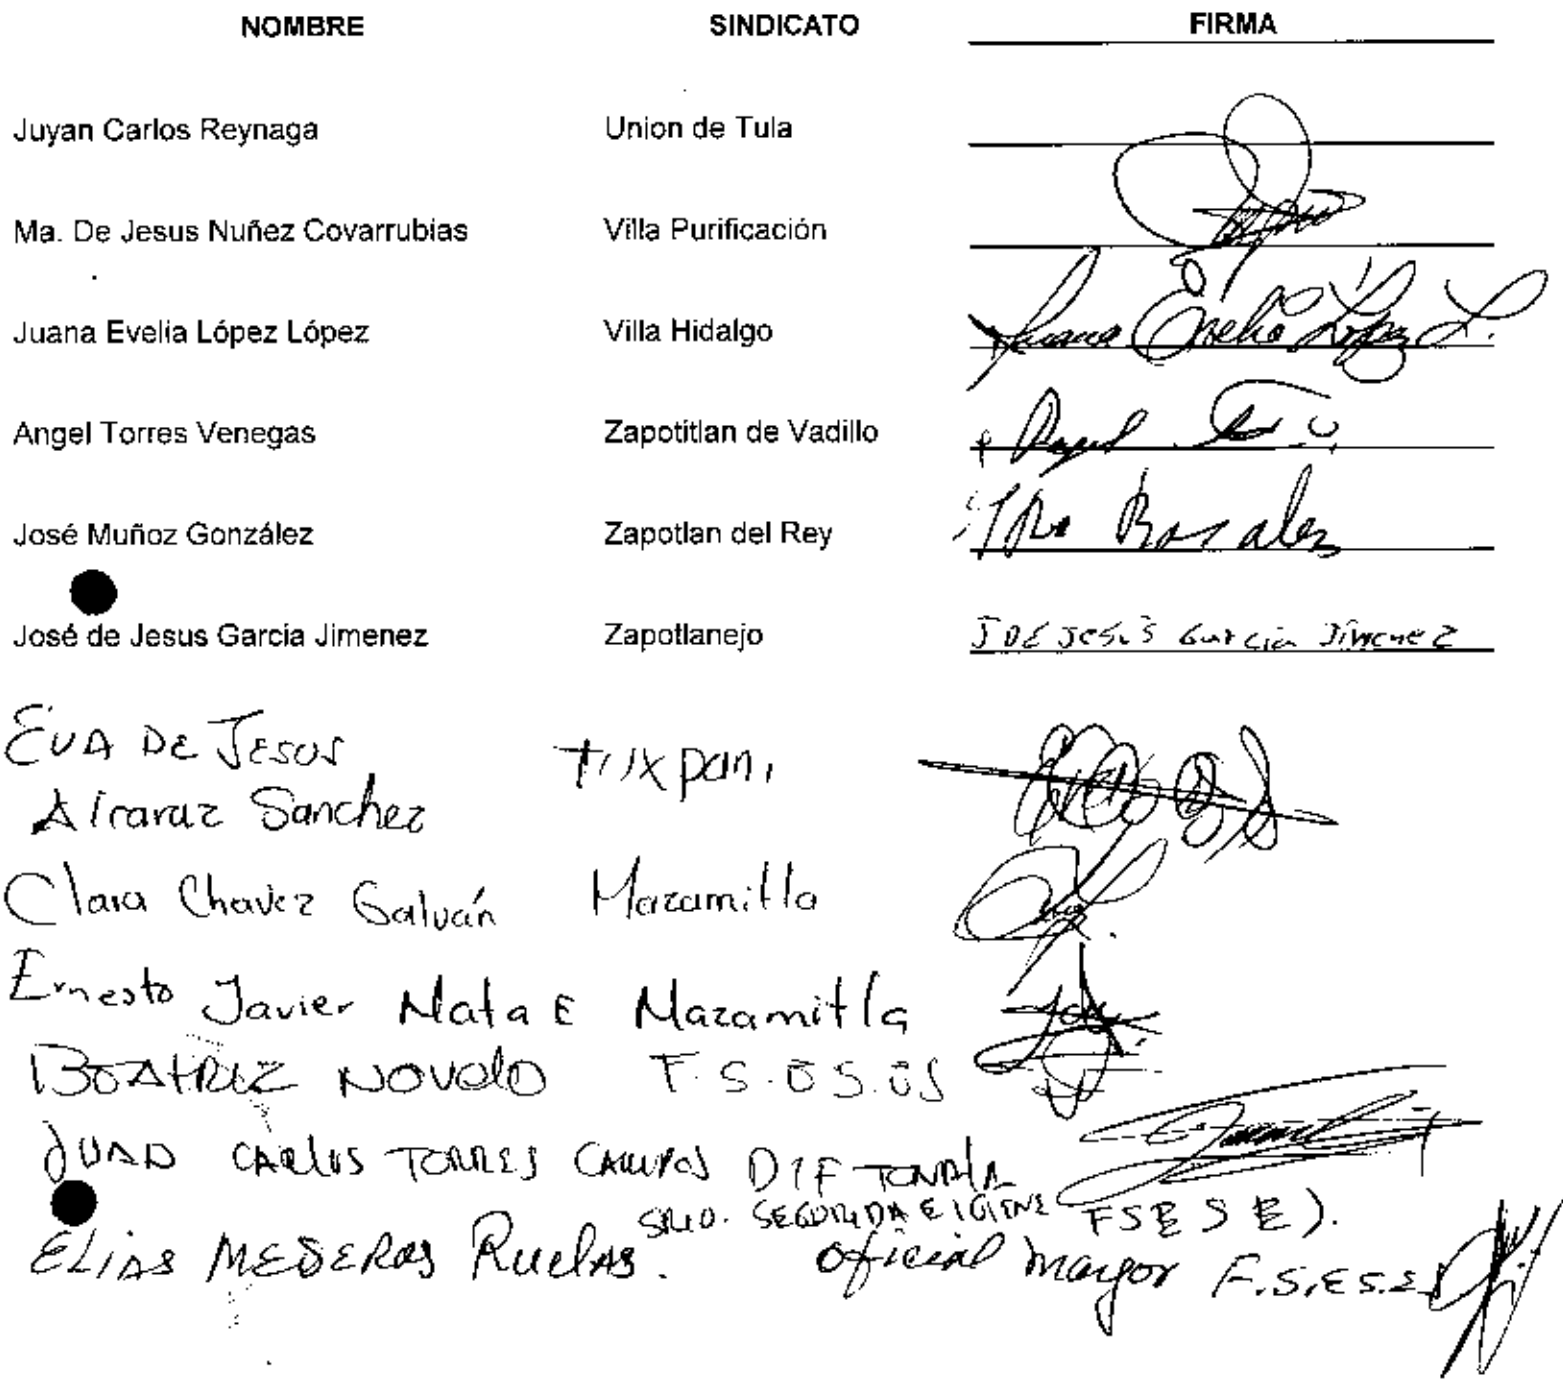 NOMBRE SINDICATO FIRMA
Juyan Carlos Reynaga Union de Tula
Ma. De Jesus Nuñez Covarrubias Villa Purificación
Juana Evelia López López Villa Hidalgo Juana Evelia López L.
Angel Torres Venegas Zapotitlan de Vadillo Angel
José Muñoz González Zapotlan del Rey Rosales
José de Jesus Garcia Jimenez Zapotlanejo J DE JESÚS García Jimenez
EVA DE JESUS tuxpan,
Alcaraz Sanchez
Clara Chavez Galván Mazamitla
Ernesto Javier Mata E Mazamitla
BEATRIZ NOVELO F.S.E S.ES
JUAN CARLOS TORRES CAMPOS DIF TONALA
SRIO. SEGURIDA E IGIENE FSESE).
ELIAS MEDEROS RUELAS. oficial mayor F.S.E.S.E.